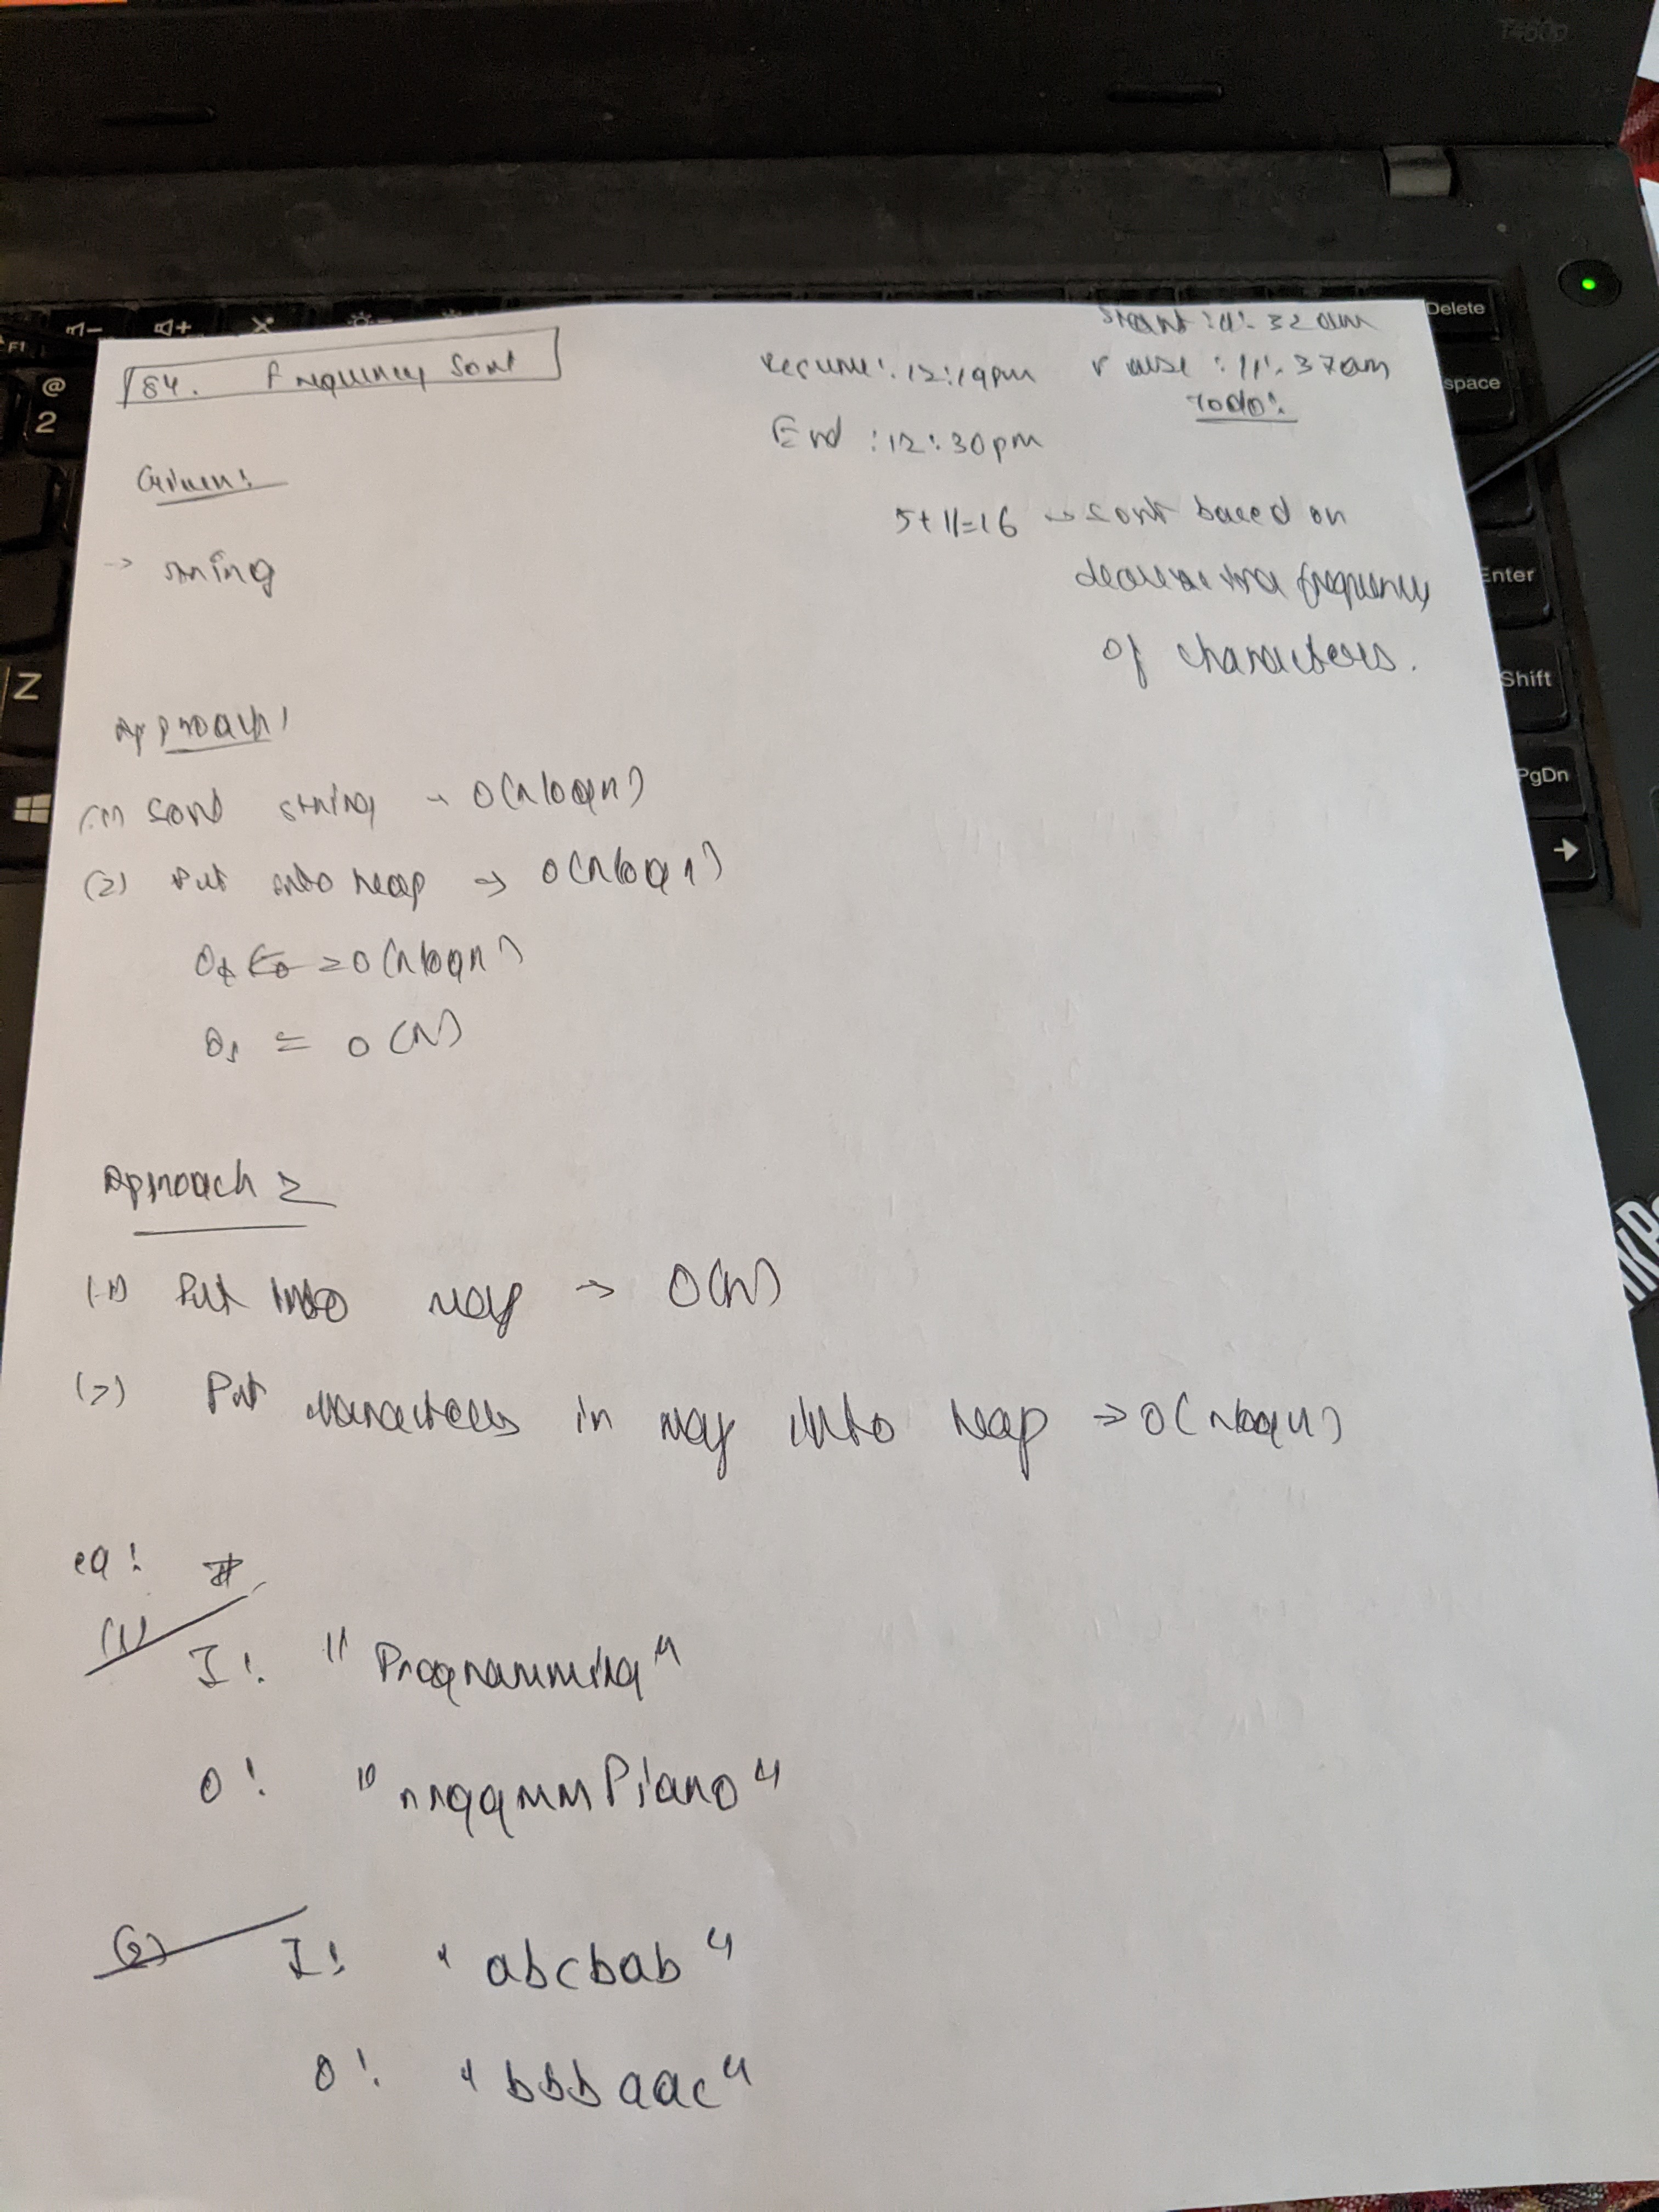 T460p
F1
Delete
@
2
space
Enter
Z
Shift
PgDn
184. Frequency Sort
Start : 11: 32am
Resume: 12:19pm Pause : 11:37am
End : 12:30pm
Todo:
Given:
5+11=16 → sort based on
→ string
decrease the frequency
of characters.
Approach 1
(1) Sort string → O(nlogn)
(2) Put into heap → O(nlogn)
Ot = O(nlogn)
Os = O(N)
Approach 2
(1) Put into map → O(N)
(2) Put characters in map into heap → O(nlogn)
eg:
(1)
I: "Programming"
O: "rrggmmPiano"
(2) I: "abcbab"
O: "bbbaac"